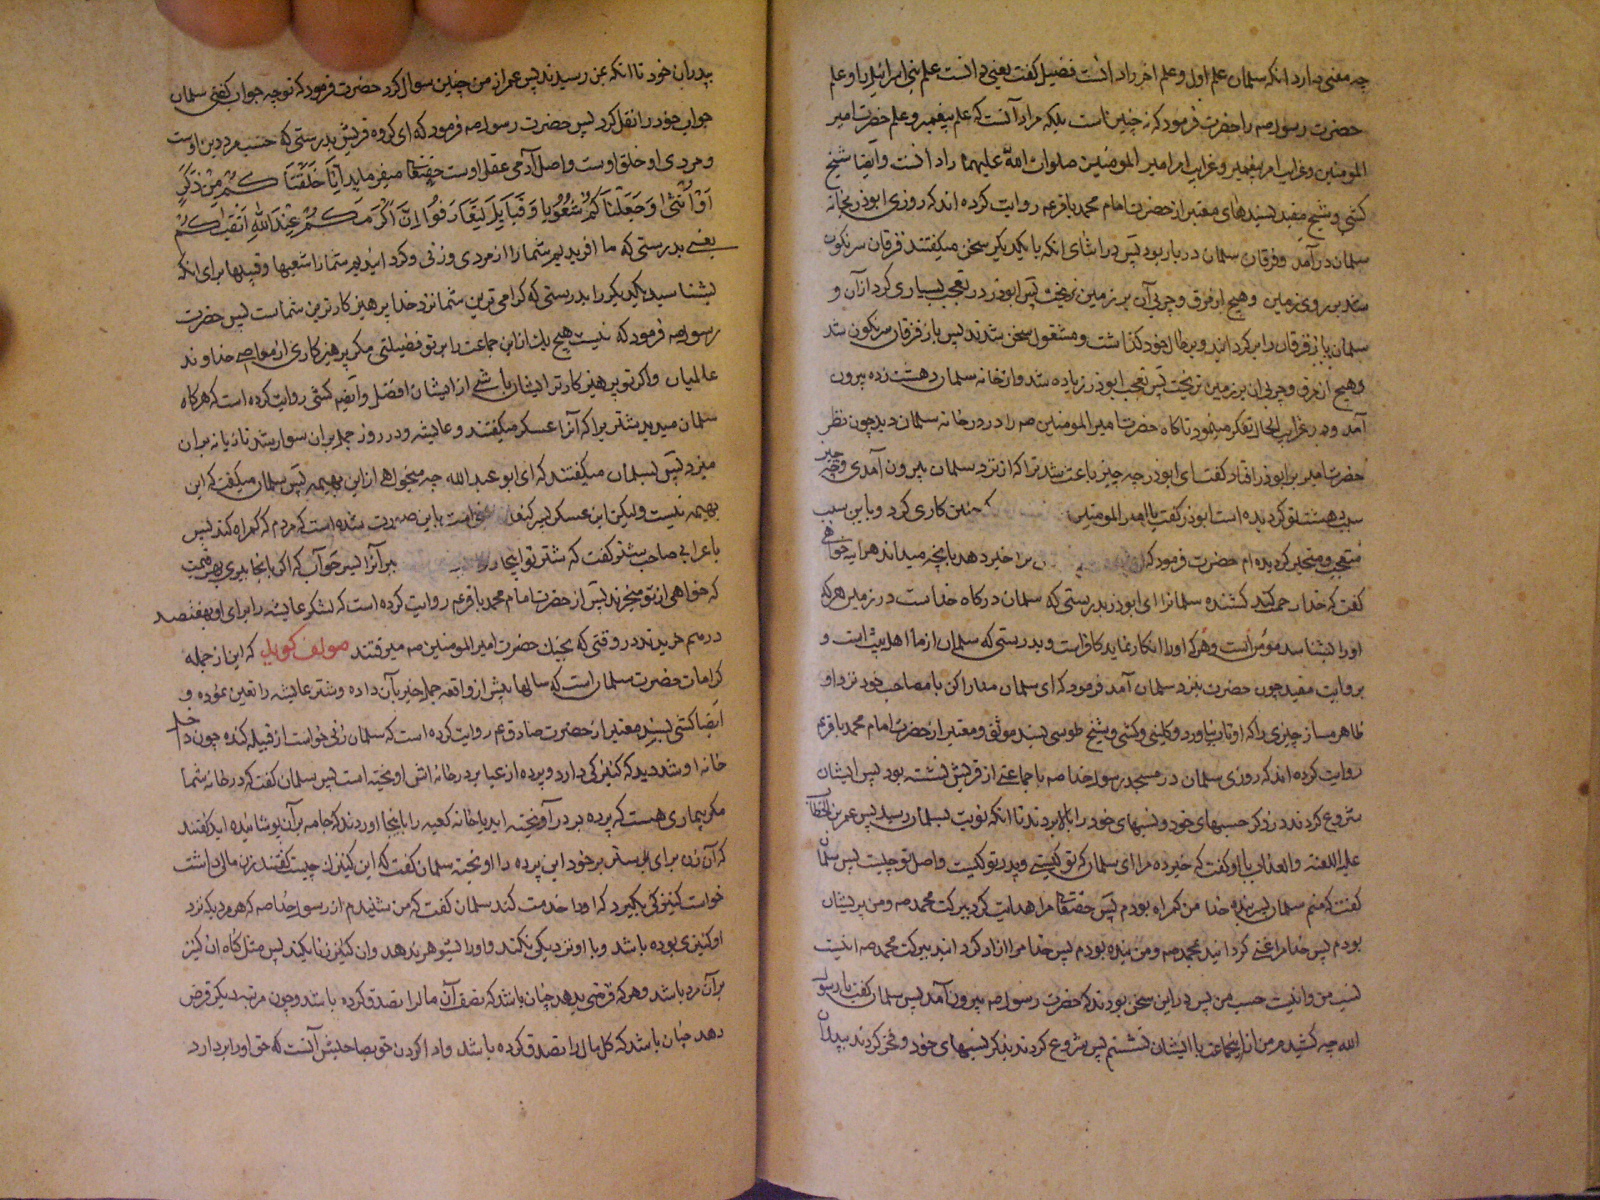 چه معنی دارد انکه سلمان علم اول و علم اخر را دانست فضیل گفت یعنی دانست علم بنی اسرائیل را و علم
حضرت رسول صه را حضرت فرمود که نه چنین است بلکه مراد آنست که علم پیغمبر و علم حضرت امیر
المومنین و غرایب امر پیغمبر و غرایب امر امیر المومنین صلوات الله علیهما را دانست و ایضا شیخ
کشی و شیخ مفید بسندهای معتبر از حضرت امام محمد باقر عم روایت کرده اند که روزی ابوذر بخانه
سلمان در آمد و قزقان سلمان در بار بود پس در اثنای انکه با یکدیگر سخن میگفتند قزقان سرنگون
شد بر روی زمین و هیچ از مرق و چربی آن بر زمین نریخت پس ابوذر در تعجب بسیاری کرد از آن و
سلمان باز قزقان را برگردانید و بر حال خود گذاشت و مشغول سخن شدند پس باز قزقان سرنگون شد
و هیچ از مرق و چربی ان بر زمین نریخت پس تعجب ابوذر زیاده شد و از خانه سلمان دهشت زده بیرون
آمد و در غرایب الحال تفکر مینمود تا کاه حضرت امیر المومنین صه را در در خانه سلمان دید چون نظر
حضرت امیر بر ابوذر افتاد گفت ای ابوذر چه چیز باعث شد ترا که از نزد سلمان بیرون آمدی و چه چیز
سبب دهشت تو گردیده است ابوذر گفت یا امیر المومنین که چنین کاری کرد و باین سبب
متعجب و متحیر گردیده ام حضرت فرمود که ترا خبر دهد بانچه میداند هر آینه خواهی
گفت که خدا رحمت کند کشنده سلمان را ای ابوذر بدرستی که سلمان درگاه خداست در زمین هر که
او را بشناسد مومن است و هر که او را انکار نماید کافر است و بدرستی که سلمان از ما اهل بیت است و
بروایت مفید چون حضرت بنزد سلمان آمد فرمود که ای سلمان مدارا کن با مصاحب خود نزد او
ظاهر مساز چیزی را که او تاب نیاورد و کلینی و کشی و شیخ طوسی بسند موثق و معتبر از حضرت امام محمد باقر عم
روایت کرده اند که روزی سلمان در مسجد رسول خدا صه با جماعتی از قریش نشسته بود پس ایشان
شروع کردند در ذکر حسبهای خود و نسبهای خود را بالا بردند تا انکه نوبت بسلمان رسید پس عمر بن الخطاب
علیه اللعنه و العذاب باو گفت که خبر ده مرا ای سلمان که تو کیستی و پدر تو کیست و اصل تو چیست پس سلمان
گفت که منم سلمان پسر بنده خدا من گمراه بودم پس حقتعالی مرا هدایت کرد ببرکت محمد صه و من پریشان
بودم پس خدا مرا غنی گردانید بمحمد صه و من بنده بودم پس خدا مرا ازاد گردانید ببرکت محمد صه اینست
نسب من و اینست حسب من پس در این سخن بودند که حضرت رسول صه بیرون آمد پس سلمان گفت یا رسول
الله چه کشیدم من از اینجماعت با ایشان نشستم پس شروع کردند بذکر نسبهای خود و فخر کردند بپدران
بپدران خود تا انکه بمن رسیدند پس عمر از من چنین سوال کرد حضرت فرمود که تو چه جواب گفتی سلمان
جواب خود را نقل کرد پس حضرت رسول صه فرمود که ای گروه قریش بدرستی که حسب مرد دین اوست
و مردی او خلق اوست و اصل آدمی عقل اوست حقتعالی میفرماید اِنّا خَلَقْناکُمْ مِنْ ذَکَرٍ
اَوْ اُنْثی وَ جَعَلْناکُمْ شُعُوْبا وَ قَبایِلَ لِتَعارَفُوْا اِنَّ اَکْرَمَکُمْ عِنْدَ اللهِ اَتْقیکُمْ
یعنی بدرستی که ما افریدیم شما را از مردی و زنی و گردانیدیم شما را شعبها و قبیلها برای انکه
بشناسید یکدیکر را بدرستی که گرامی ترین شما نزد خدا پرهیزکارترین شماست پس حضرت
رسول صه فرمود که نیست هیچ یک از این جماعت را بر تو فضیلتی مگر پرهیزکاری از معاصی خداوند
عالمیان و اگر تو پرهیزکارتر از ایشان باشی از ایشان افضل و ایضا کشی روایت کرده است که هرگاه
سلمان میدید شتریرا که آنرا عسکر میگفتند و عایشه در روز جمل بران سوار شد تازیانه بران
میزد پس بسلمان میگفتند که ای ابو عبد الله چه میخواهی از این بهیمه پس سلمان میگفت که این
بهیمه نیست ولیکن این عسکر پسر کنعان جنی است باین صورت شده است که مردم که گمراه کند پس
باعرابی صاحب شتر گفت که شتر تو اینجا ببر آنرا بسر حوآب که اگر بانجا ببری بهر قیمت
که خواهی از تو میخرند پس از حضرت امام محمد باقر عم روایت کرده است که لشکر عایشه را برای او بهفتصد
درهم خریدند در وقتی که بجنک حضرت امیر المومنین صه میرفتند مولف گوید که این از جمله
کرامات حضرت سلمان است که سالها پیش از واقعه جمل خبر بآن داده و شتر عایشه را تعین نموده و
ایضا کشی بسند معتبر از حضرت صادق عم روایت کرده است که سلمان زنی خواست از قبیله کنده چون داخل
خانه او شد دید که کنیزکی دارد و پرده از عبا بر در خانه اش اویخته است پس سلمان گفت که در خانه شما
مکر بیماری هست که پرده بر در آویخته اید یا خانه کعبه را باینجا اوردند که جامه بر آن پوشانیده اید گفتند
که آن زن برای ستر بر خود این پرده را اویخته سلمان گفت که این کنیزک چیست گفتند زن مالی داشت
خواست کنیزکی بگیرد که او را خدمت کند سلمان گفت که من شنیدم از رسول خدا صه که هر مردی که نزد
او کنیزی بوده باشد و با او نزدیکی نکند و او را بشوهر ندهد و ان کنیز زنا بکند پس مثل کناه ان کنیز
بر آن مرد باشد و هر که قرضی بدهد چنان باشد که نصف آن مال را تصدق کرده باشد و چون مرتبه دیگر قرض
دهد چنان باشد که کل مال را تصدق کرده باشد و ادا کردن حق بصاحبش آنست که حق او را بردارد